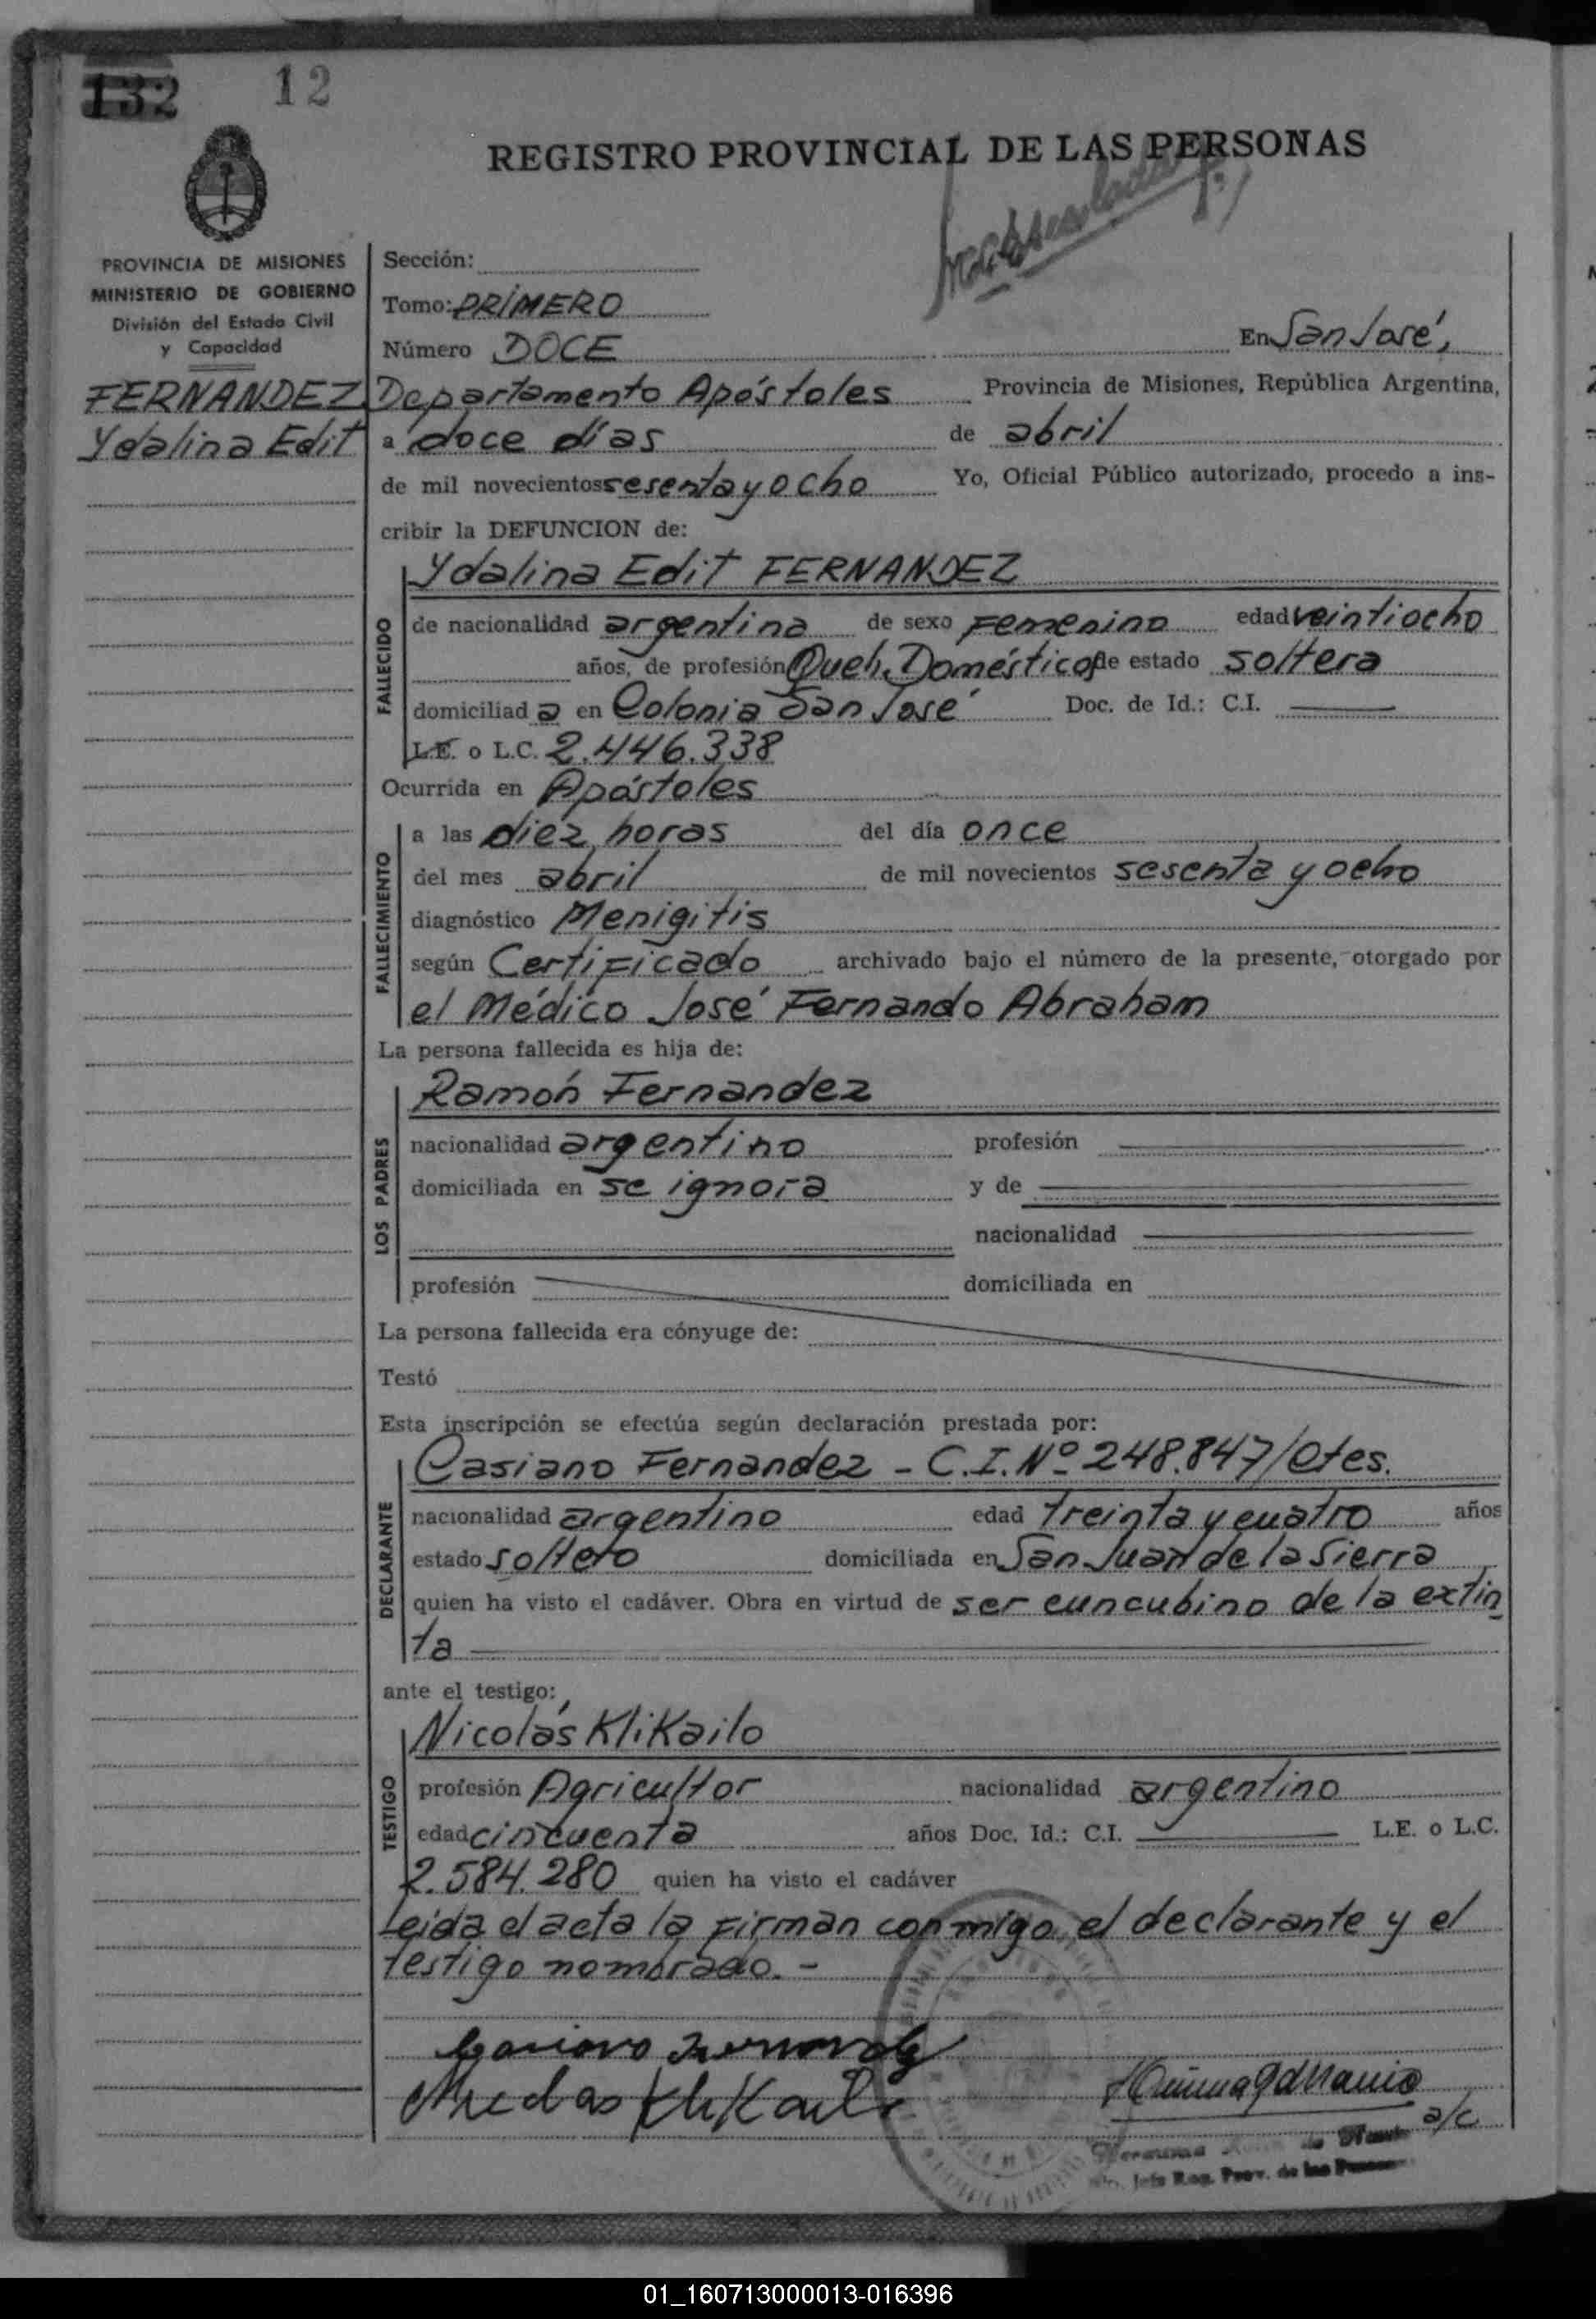 132 12
REGISTRO PROVINCIAL DE LAS PERSONAS
PROVINCIA DE MISIONES
MINISTERIO DE GOBIERNO
División del Estado Civil
y Capacidad
FERNANDEZ
Ydalina Edit
Sección:
Tomo: PRIMERO
Número DOCE En San José,
Departamento Apóstoles Provincia de Misiones, República Argentina,
a doce días de abril
de mil novecientos sesenta y ocho Yo, Oficial Público autorizado, procedo a ins-
cribir la DEFUNCION de:
FALLECIDO
Ydalina Edit FERNANDEZ
de nacionalidad argentina de sexo Femenino edad veintiocho
años, de profesión Queh. Domésticos de estado soltera
domiciliad a en Colonia San José Doc. de Id.: C.I.
L.E. o L.C. 2.446.338
Ocurrida en Apóstoles
FALLECIMIENTO
a las diez horas del día once
del mes abril de mil novecientos sesenta y ocho
diagnóstico Menigitis
según Certificado archivado bajo el número de la presente, otorgado por
el Médico José Fernando Abraham
La persona fallecida es hija de:
LOS PADRES
Ramón Fernandez
nacionalidad argentino profesión
domiciliada en se ignora y de
nacionalidad
profesión domiciliada en
La persona fallecida era cónyuge de:
Testó
Esta inscripción se efectúa según declaración prestada por:
DECLARANTE
Casiano Fernandez - C.I. Nº 248.847/Ctes.
nacionalidad argentino edad treinta y cuatro años
estado soltero domiciliada en San Juan de la Sierra
quien ha visto el cadáver. Obra en virtud de ser cuncubino de la extin
ta
ante el testigo:
TESTIGO
Nicolás Klikailo
profesión Agricultor nacionalidad argentino
edad cincuenta años Doc. Id.: C.I. L.E. o L.C.
2.584.280 quien ha visto el cadáver
Leida el acta la firman conmigo, el declarante y el
testigo nombrado. -
Nicolas Klikailo
a/c
Jefe Reg. Prov. de las
01_160713000013-016396